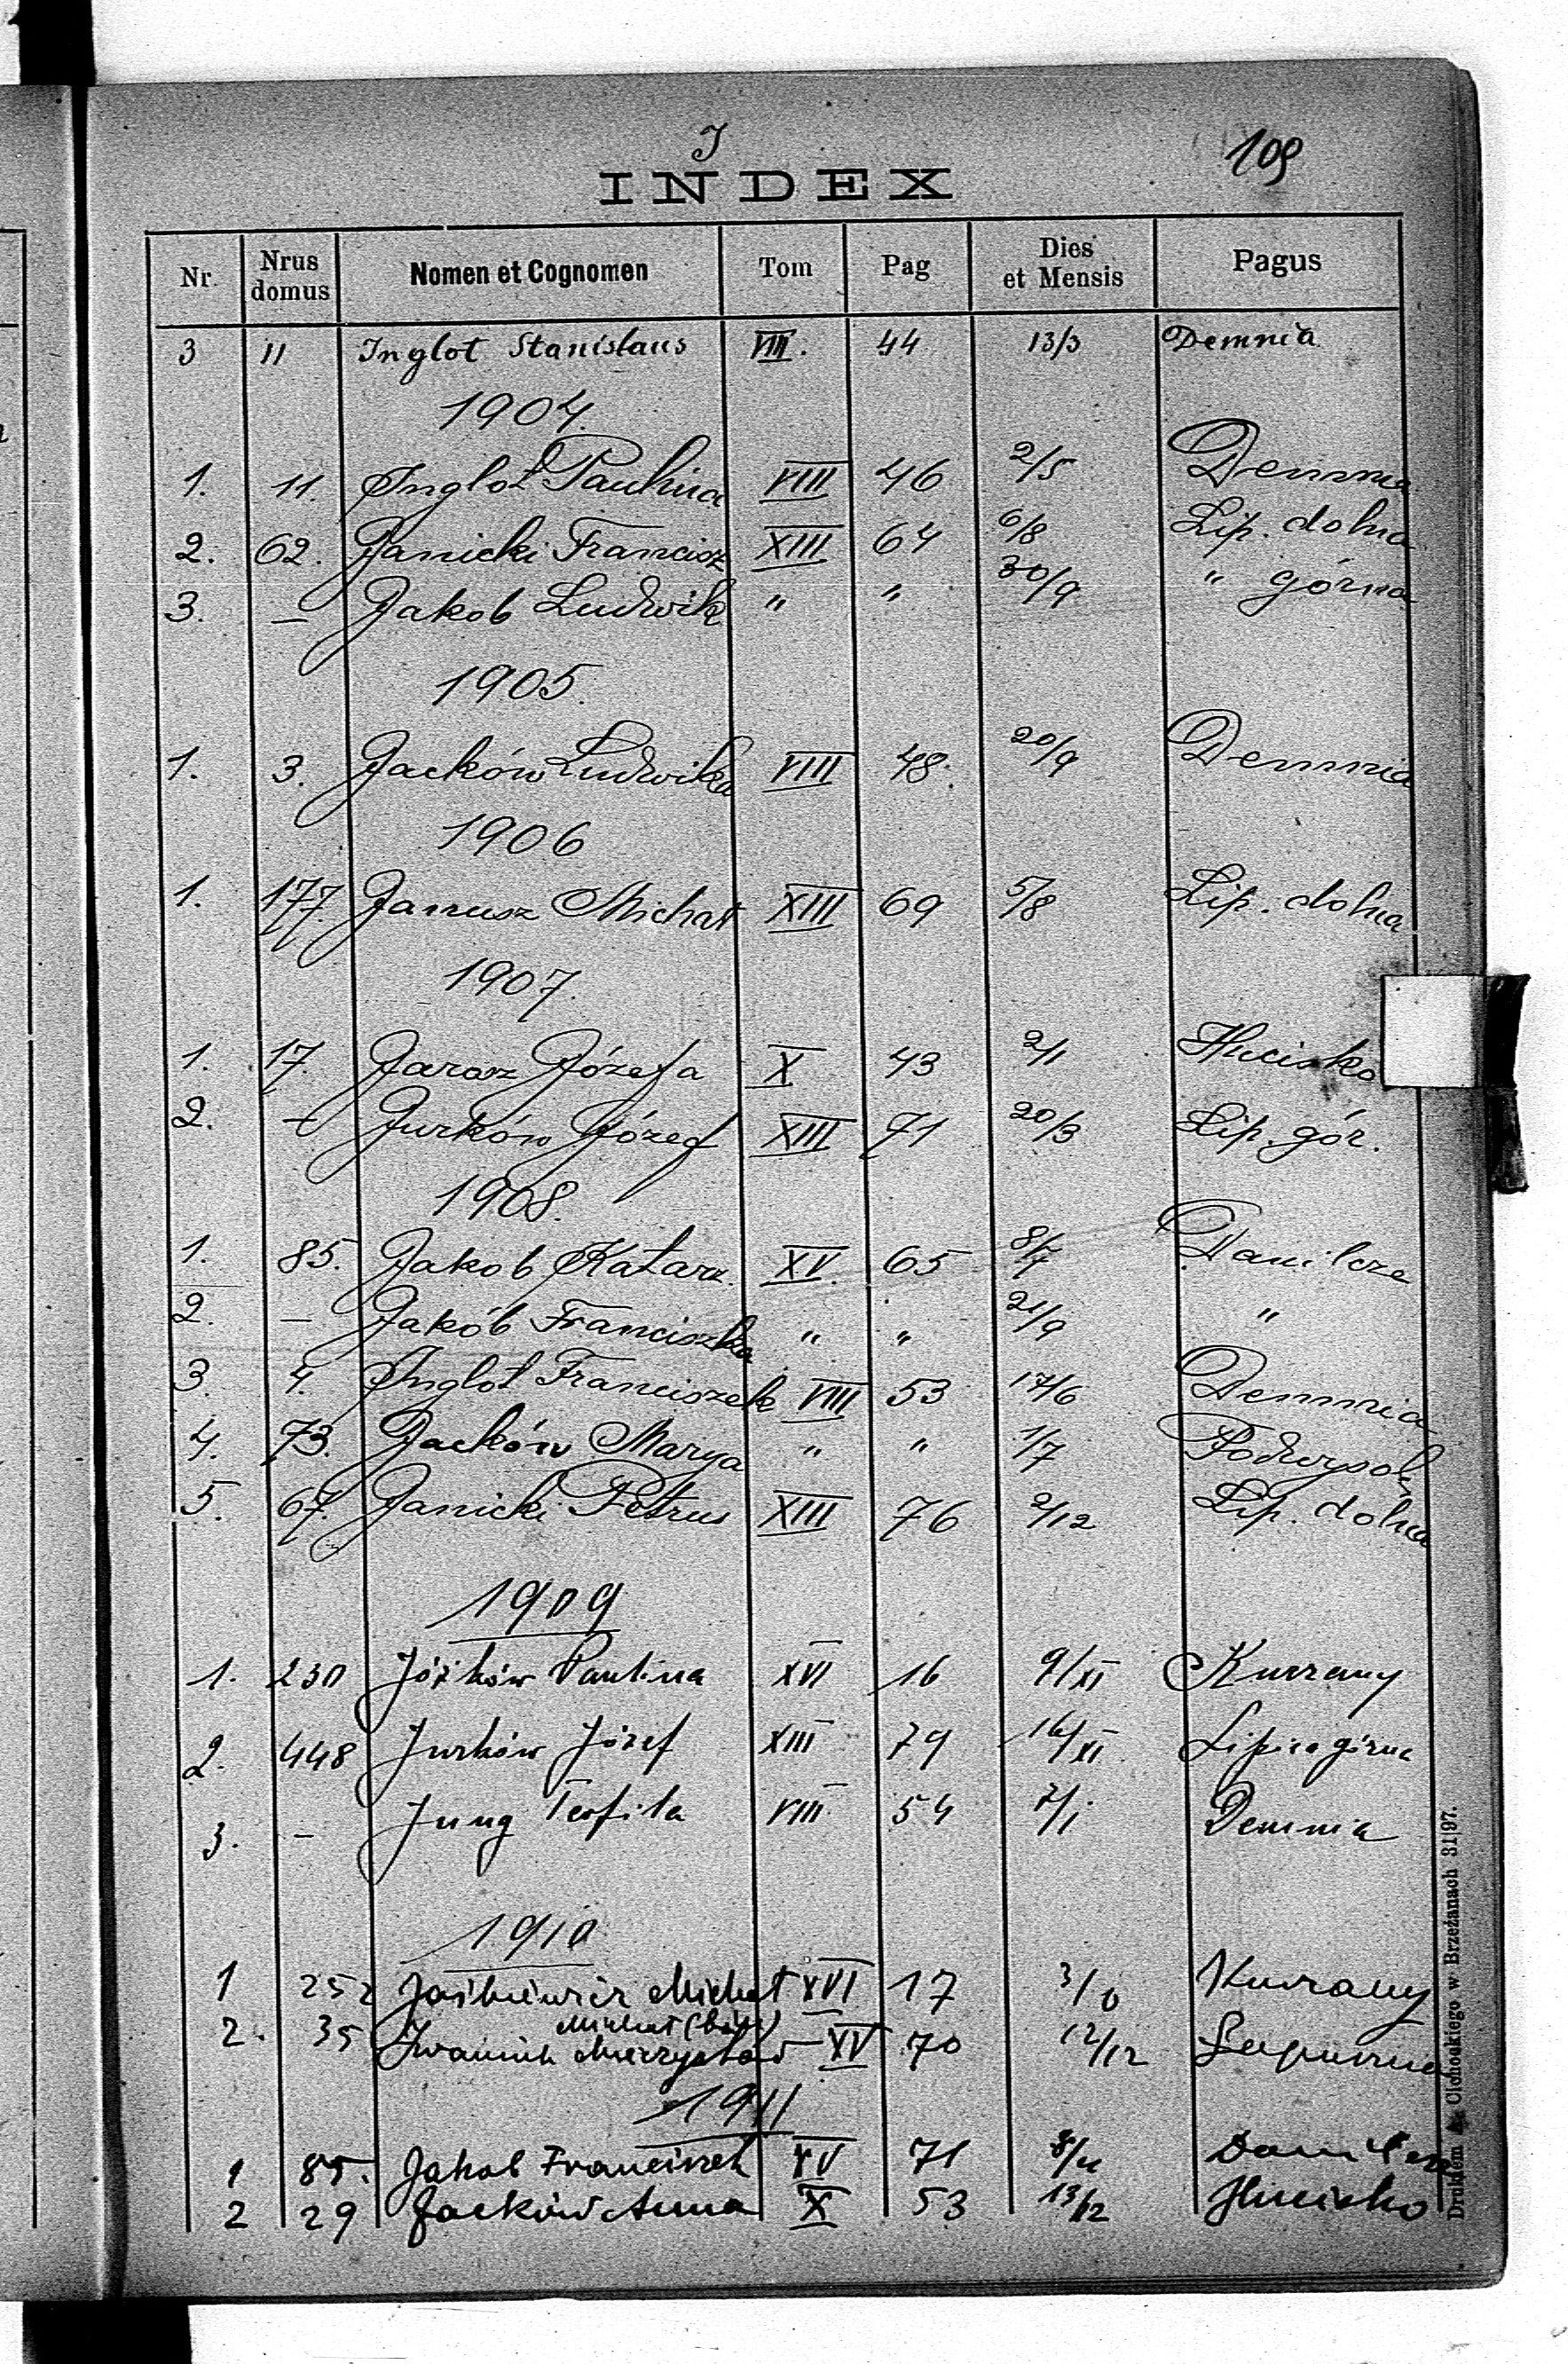 J
109
INDEX
Nr. Nrus domus Nomen et Cognomen Tom Pag Dies et Mensis Pagus
3 11 Inglot Stanislaus VIII. 44 13/3 Demnia
1904.
1. 11. Inglot Paulina VIII 46 2/5 Demnia
2. 62. Janicki Francisz XIII 64 6/8 Lip. dolna
3. — Jakob Ludwik " " 30/9 " górna
1905.
1. 3. Jacków Ludwika VIII 48. 20/9 Demnia
1906
1. 177. Janusz Michał XIII 69 5/8 Lip. dolna
1907.
1. 17. Jarosz Józefa X 43 2/1 Huciska
2. — Jurków Józef XIII 71 20/3 Lip. gór.
1908.
1. 85. Jakob Katarz. XV. 65 8/7 Danilcze
2. — Jakób Franciszka " " 21/9 "
3. 4. Inglot Franciszek VIII 53 17/6 Demnia
4. 73. Jacków Marya " " 1/7
5. 67. Janicki Petrus XIII 76 2/12 Lip. dolna
1909
1. 230 Jóźków Paulina XVI 16 9/XI Kurzany
2. 448 Jurków Józef XIII 79 16/XI Lipica górna
3. — Jung Teofila VIII 54 7/1 Demnia
1910
1 252 Jaśkiewicz Michał XVI 17 Kurzany
2. 35 Michał Mieczysław XV 70 12/12
1911
1 85. Jakob Franciszek XV 71 Danilcze
2 29 Jacków Anna X 53 13/12 Hucisko
Drukiem A. Cichockiego w Brzeżanach 31|97.